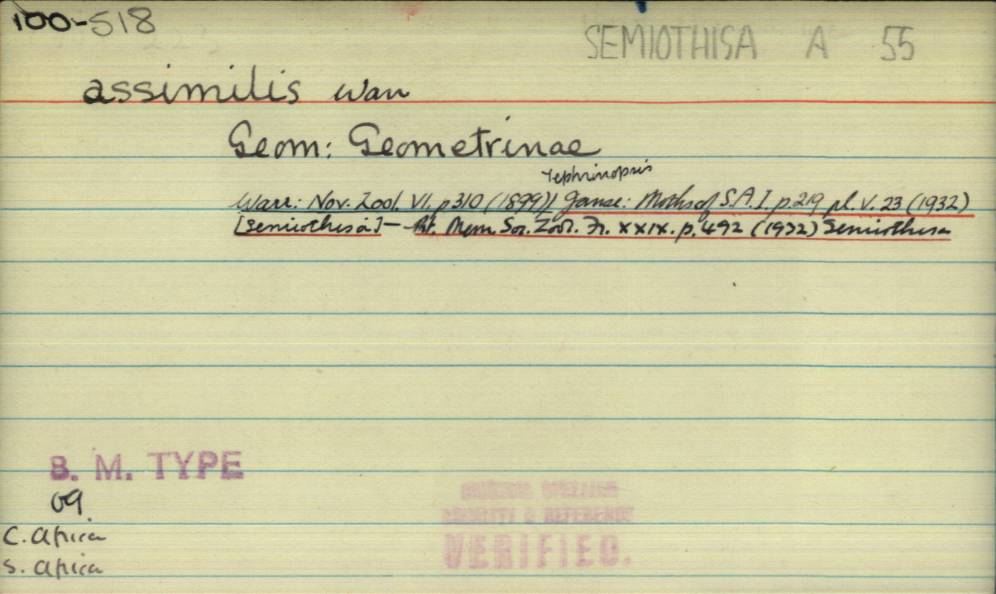 100-518
SEMIOTHISA A 55
assimilis Warr
Geom: Geometrinae
Tephrinopsis
Warr: Nov. Zool. VI. p 310 (1899)! Janse: Moths of S.A. I. p. 219 pl. V. 23 (1932)
[Semiothisa] — Mem. Soc. Zool. Fr. XXIX. p. 492 (1932) Semiothisa
B. M. TYPE
C. Africa
S. Africa
LOCALITY & REFERENCE
VERIFIED.